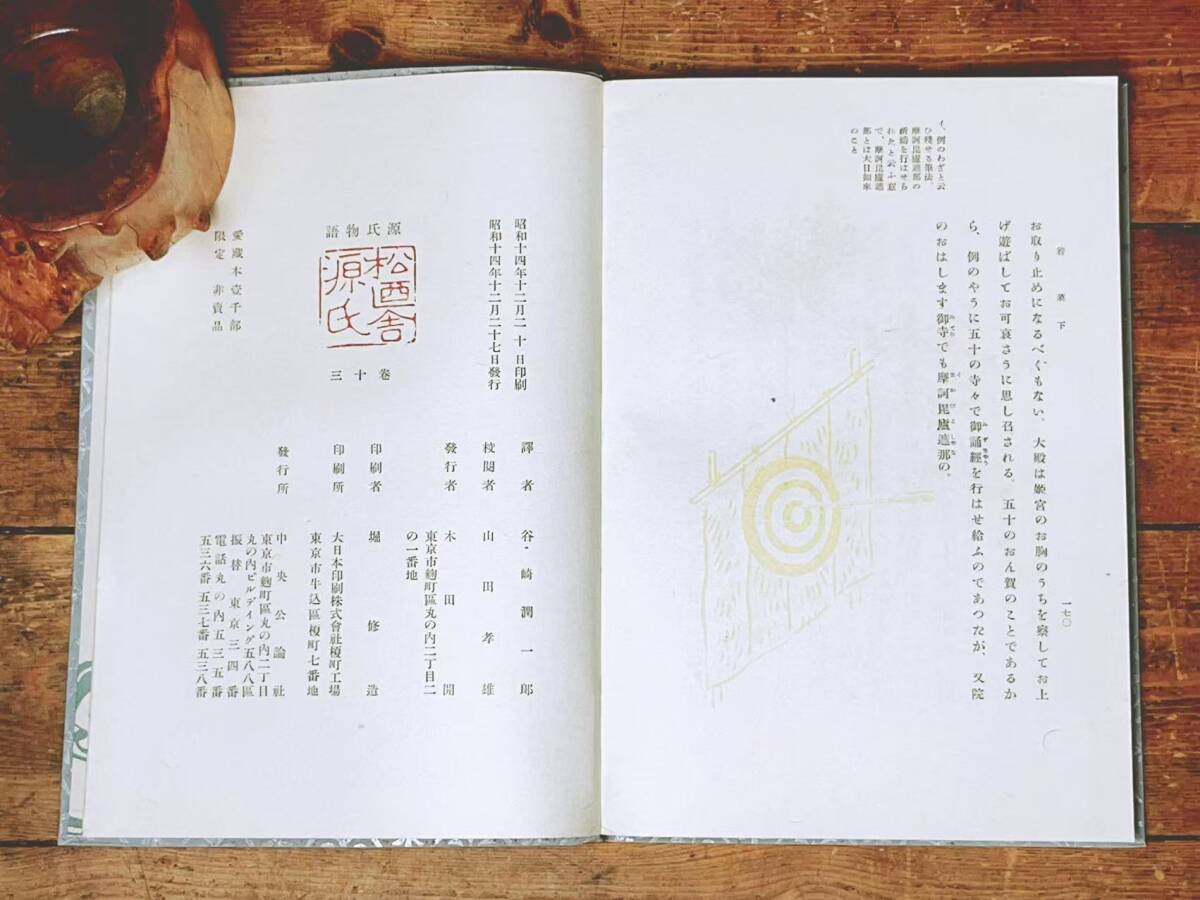 一七〇
若菜下
お取り止めになるべくもない、大殿は姫宮のお胸のうちを察してお上
げ遊ばしてお可哀さうに思し召される。五十のおん賀のことであるか
ら、例のやうに五十の寺々で御誦經を行はせ給ふのであつたが、又院
のおはします御寺でも摩訶毘盧遮那の。
イ、例のわざと云
ひ殘せる筆法。
摩訶毘盧遮那の
祈禱を行はせら
れたと云ふ意
で、摩訶毘盧遮
那とは大日如來
のこと
昭和十四年十二月二十日印刷
昭和十四年十二月二十七日發行
源氏物語
松廼舍
源氏
卷十三
愛藏本壹千部
限定 非賣品
譯者 谷崎潤一郎
校閲者 山田孝雄
發行者 木田開
東京市麹町區丸の内二丁目二
の一番地
印刷者 堀修造
印刷所 大日本印刷株式會社榎町工場
東京市牛込區榎町七番地
發行所 中央公論社
東京市麹町區丸の内二丁目
丸の内ビルデイング五八八區
振替東京三四番
電話丸の内五三五番
五三六番五三七番五三八番